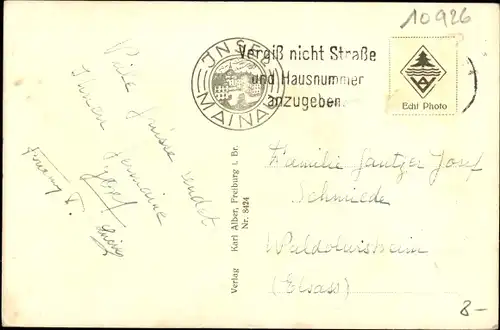 10926
INSEL MAINAU
Vergiß nicht Straße
und Hausnummer
anzugeben.
Echt Photo
Viele Grüsse sendet
Ihnen Germaine
Josef
Fanny T.
Familie Gantzer Josef
Schmiede
Waldolwisheim
(Elsass)
Verlag Karl Alber, Freiburg i. Br.
Nr. 8424
8-